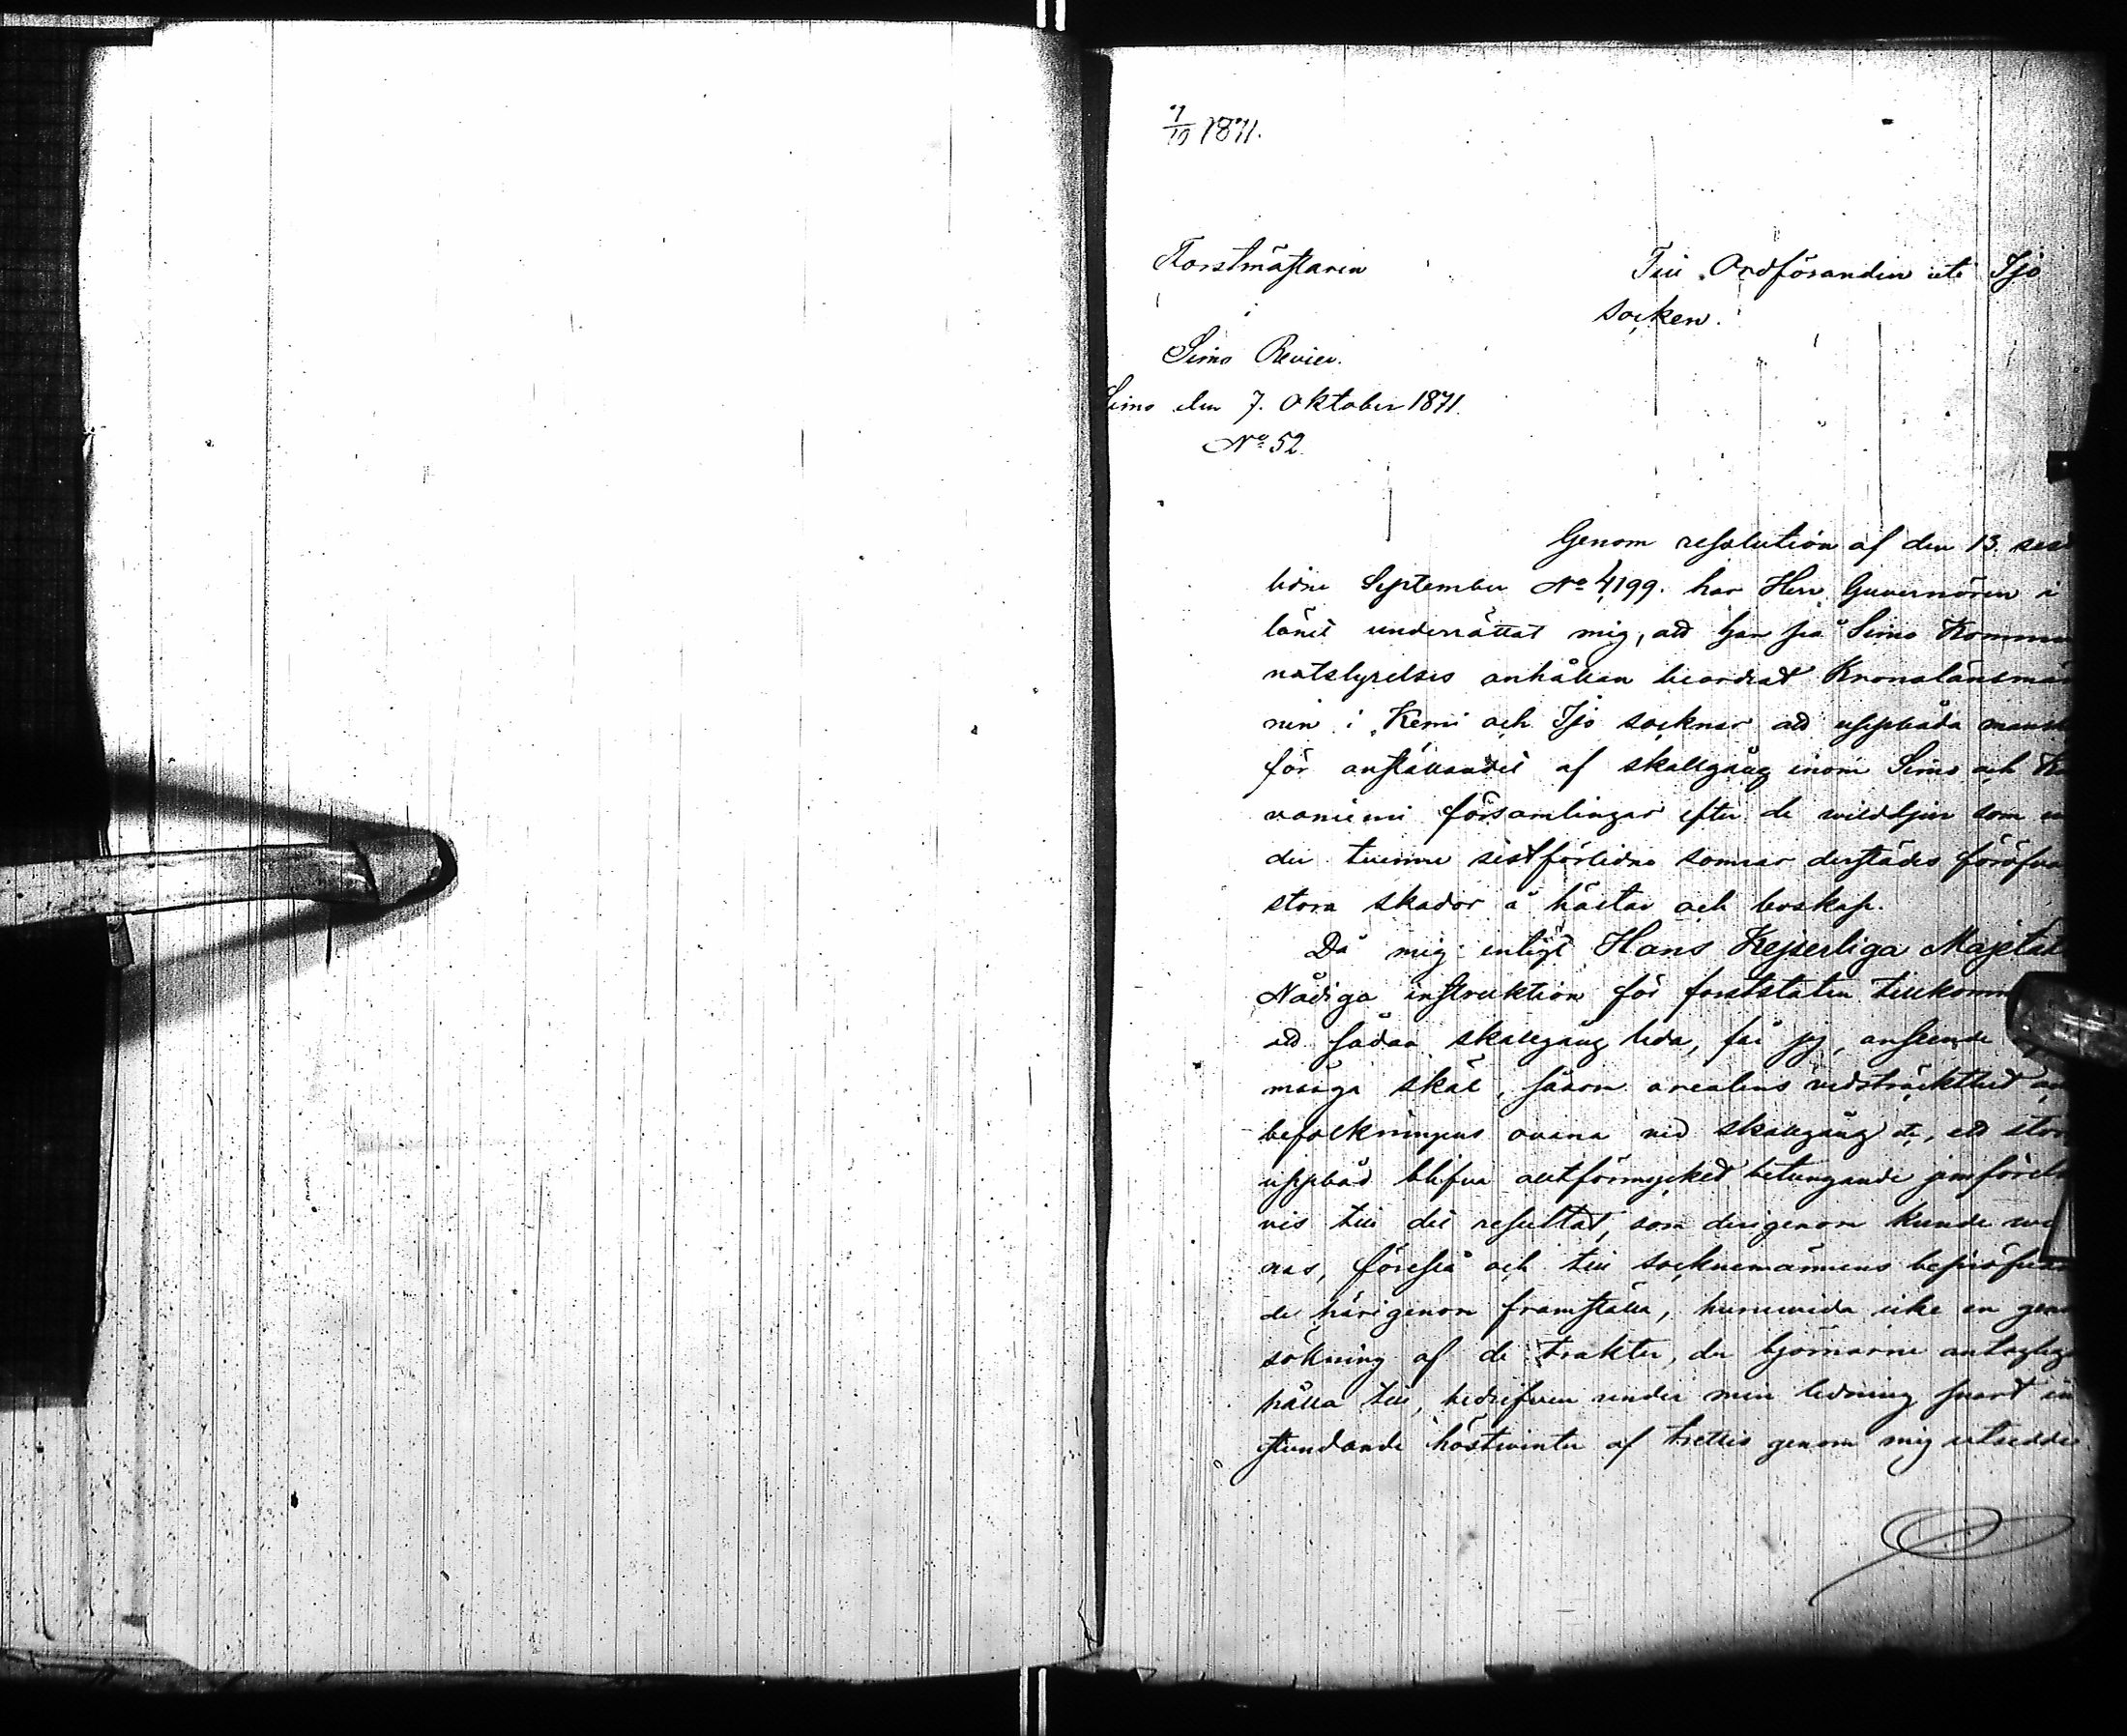 7/10 1871.
Forstmästaren
i
Simo Revier.
Simo den 7. Oktober 1871.
No 52.
Till Ordföranden uti Ijo
socken.
Genom resolution af den 13. sist
lidne September No 4,199. har Herr Guvernören i
länet underrättat mig, att han på Simo Kommu
nalstyrelses anhållan beordrat Kronolänsmän
nen i Kemi och Ijo socknar att uppbåda mansk
för anställandet af skallgång inom Simo och
vaniemi församlingar efter de vilddjur som un
der tvenne sistförlidne somrar derstädes föröfva
stora skador å hästar och boskap.
Då mig enligt Hans Kejserliga Majestäts
Nådiga instruktion för forststaten tillkomm
att sådan skallgång leda, får jag, anseende
många skäl, såsom arealens vidsträckthet
befolkningens ovana vid skallgång etc, ett stor
uppbåd blifva alltförmycket betungande jemförels
vis till det resultat, som derigenom kunde vin
nas, föreslå och till sockenemännens bepröfvan
de härigenom framställa, huruvida icke en genom
sökning af de trakter, der björnarne antagligen
hålla till, bedrifven under min ledning snart in
stundande höstvinter af trettio genom mig utsedde